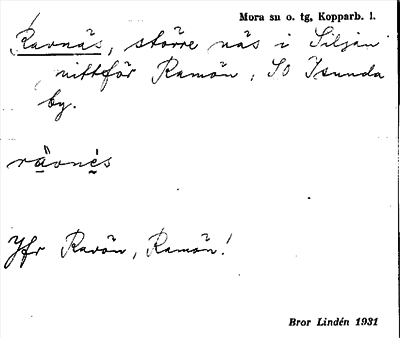 Mora sn o. tg, Kopparb. l.
Ravnäs, större näs i Siljan
mittför Ramön, SO Isunda
by.
rävnés
Jfr Ravön, Ramön!
Bror Lindén 1931